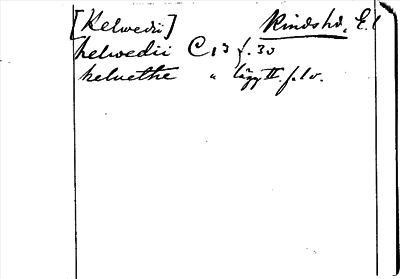 [Kelwedii] Kindshd, E.
helwedii C 13 f. 30
heluethe " lägg II. f. 1 v.